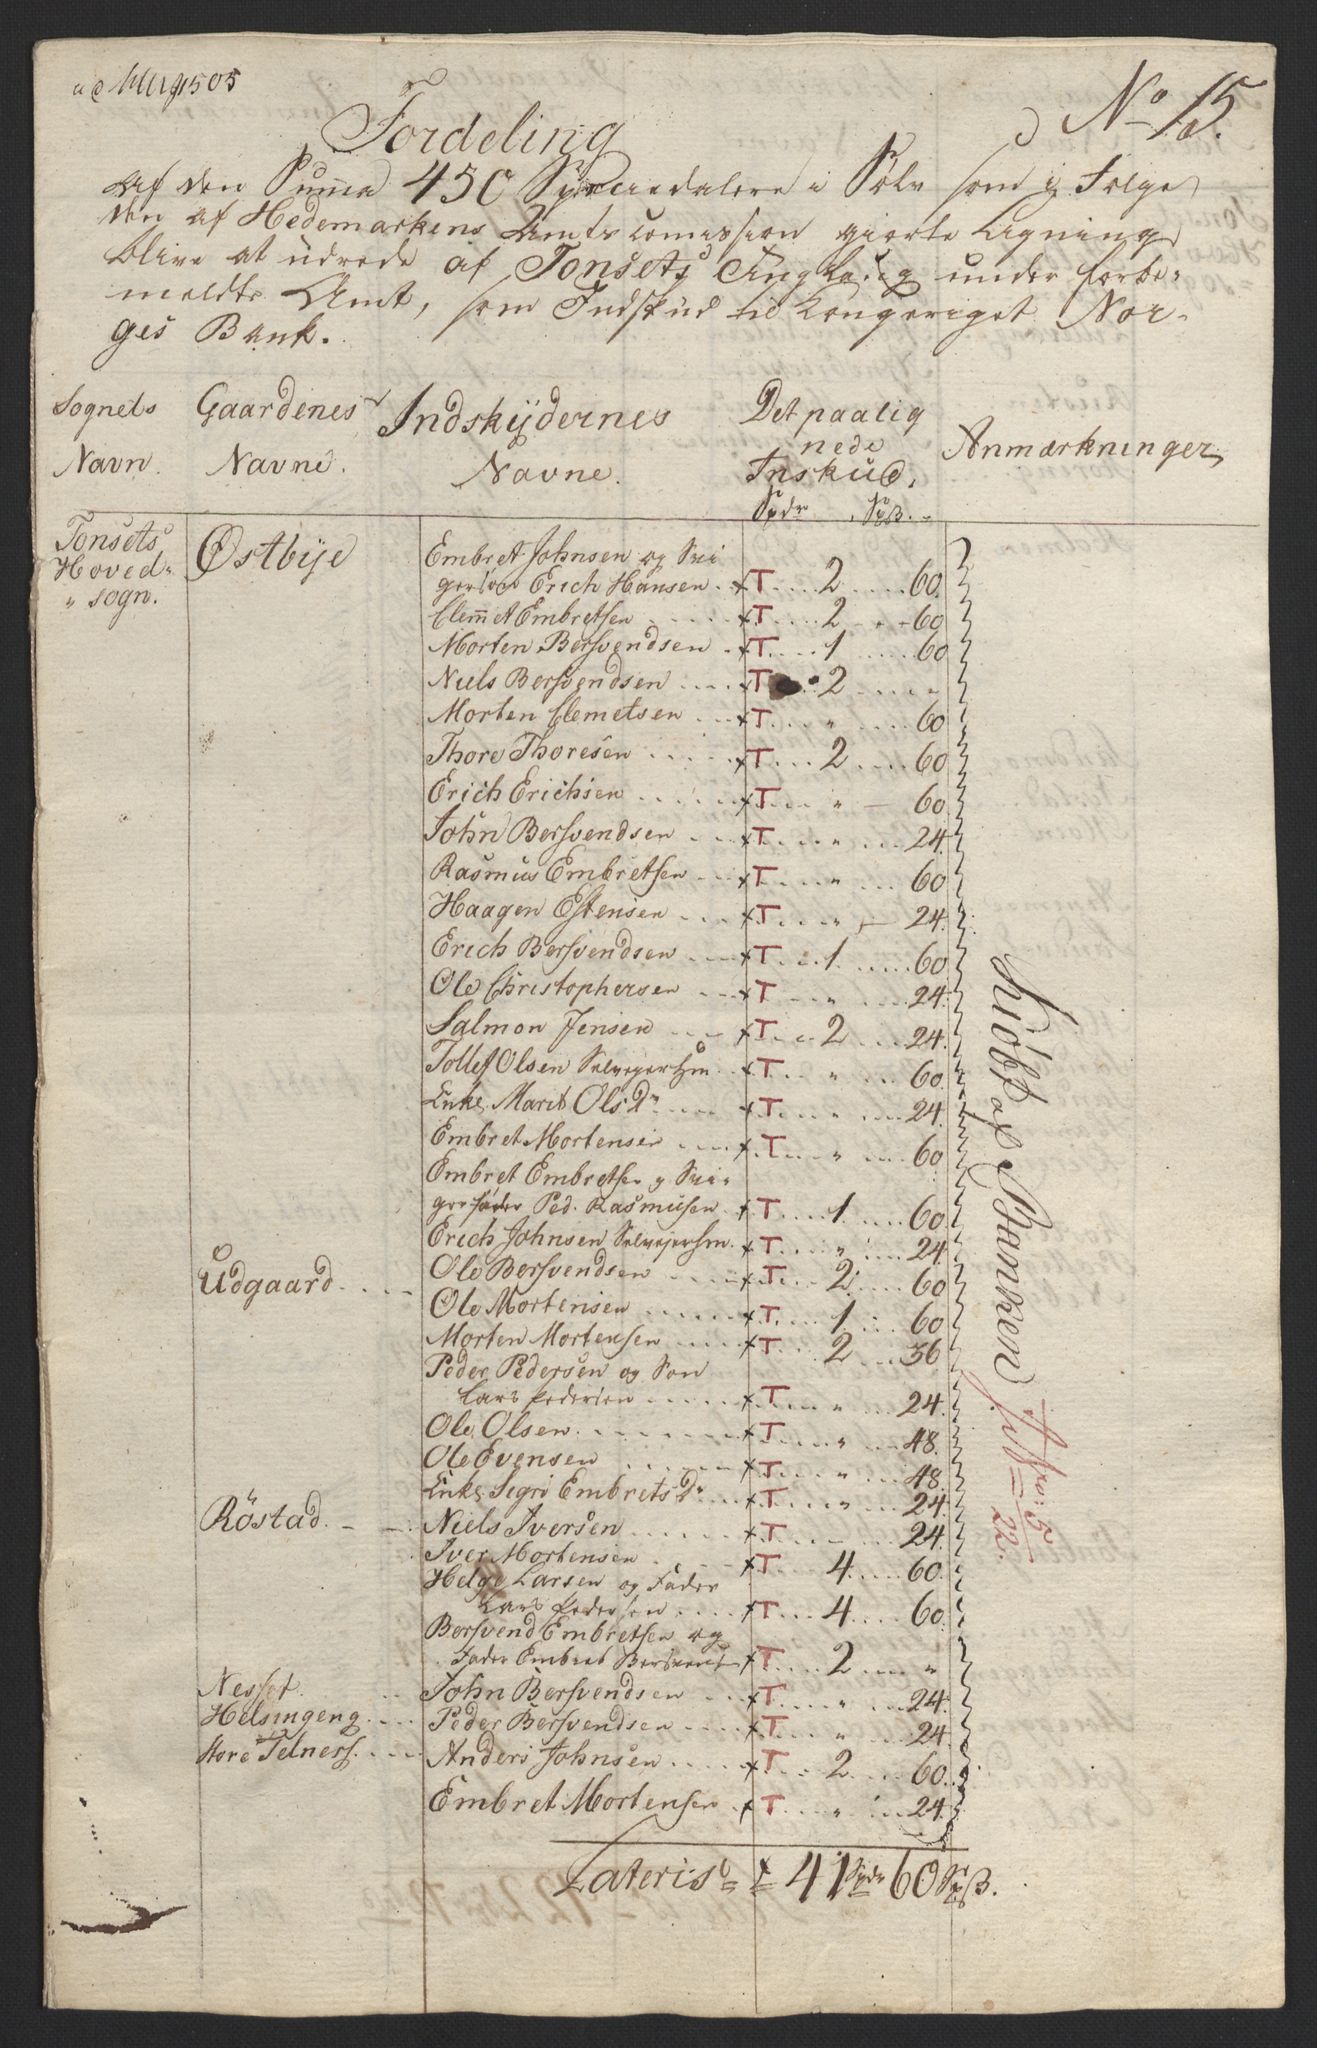 No 15.
Fordeling
Af den Summa 450 Speciedalere i Sølv som i Følge
den af Hedemarkens Amts comission giorte Ligning
blive at udrede af Tønsets Tinglaug under forbe-
meldte Amt, som Indskud til Kongeriget Nor-
ges Bank.
Sognets Navn. Gaardenes Navne. Indskÿdernes Navne. Det paalig nede Inskud, Spdr. Sps. Anmærkninger,
Tønsets Hoved- sogn. Østbÿe Embret Johnsen og Svi
gersøn Erich Hansen . x T .... 2 ..... 60.
Clemmet Embretsen ..... x T .... 2 - - 60
Morten Bersvendsen . x T .... 1 ..... 60
Niels Bersvendsen .... x T ... 2 ..... „
Morten Clemetsen ... x T .... „ ..... 60
Thore Thoresen ..... x T ... 2 .... 60
Erich Erichsen ..... x T .... „ — 60
John Bersvendsen .. x T .... „ .... 24
Rasmus Embretsen ... x T .... „ .... 60
Haagen Estensen ... x T .... „ — 24
Erich Bersvendsen ... x T ... 1 ..... 60
Ole Christophersen ... x T ... „ .... 24
Salmon Jensen ... x T ... 2 ... 24
Tollef Olsen Selveyer Hm . x T ... „ ... 60
Enke Marit Ols Dr ... x T ... „ ... 24
Embret Mortensen .... x T ... „ ... 60
Embret Embretsen og Svi-
gerfader Ped. Rasmusen . x T .... 1 .... 60
Erich Johnsen Selveyer Hm. x T .... „ .... 24
Udgaard .... Ole Bersvendsen ..... x T ... 2 .... 60
Ole Mortensen ...... x T .... 1 ... 60
Morten Mortensen .... x T ... 2 ... 36
Peder Pedersen og Søn
Lars Pedersen ..... x T .... „ .... 24.
Ole Olsen ....... x T .... „ .... 48.
Ole Evensen ...... x T .... „ .... 48.
Enke Segri Embrets Dr .. x T .... „ .... 24
Röstad ... Niels Iversen ..... x T .... - ... 24
Iver Mortensen ..... x T ... 4 .... 60.
Helge Larsen og Fader
Lars Pedersen .... x T ... 4 .... 60.
Bersvend Embretsen og
Fader Embret Bersvends x T ... 2 .... „
Nesset ... John Bersvendsen ... x T .... „ ... 24.
Helsingeng .... Peder Bersvendsen ... x T .... „ ... 24
Store Telness .... Anders Johnsen ..... x T ... 2 .... 60
Embret Mortensen . x T .... „ ... 24.
Kiøbt af Banken
5
22.
Lateris = 41 Spdr 60 Sps.